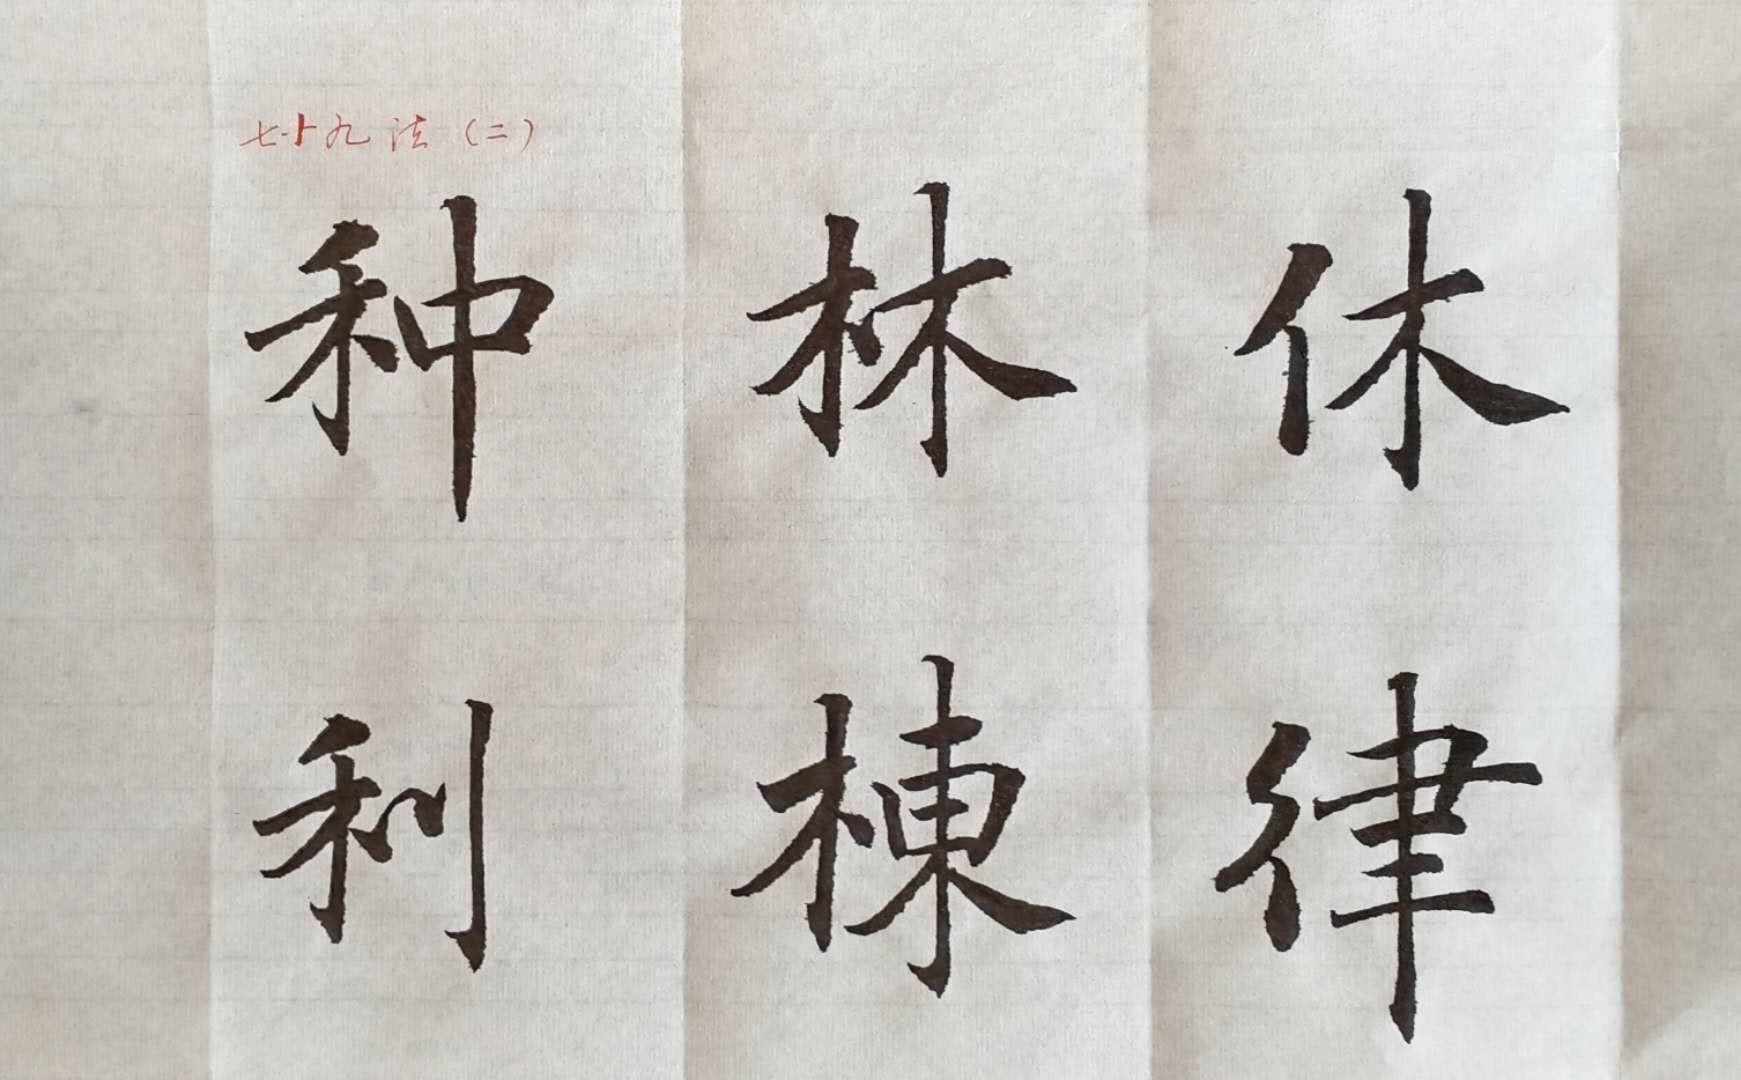 七十九法(二)
种林休
利棟律